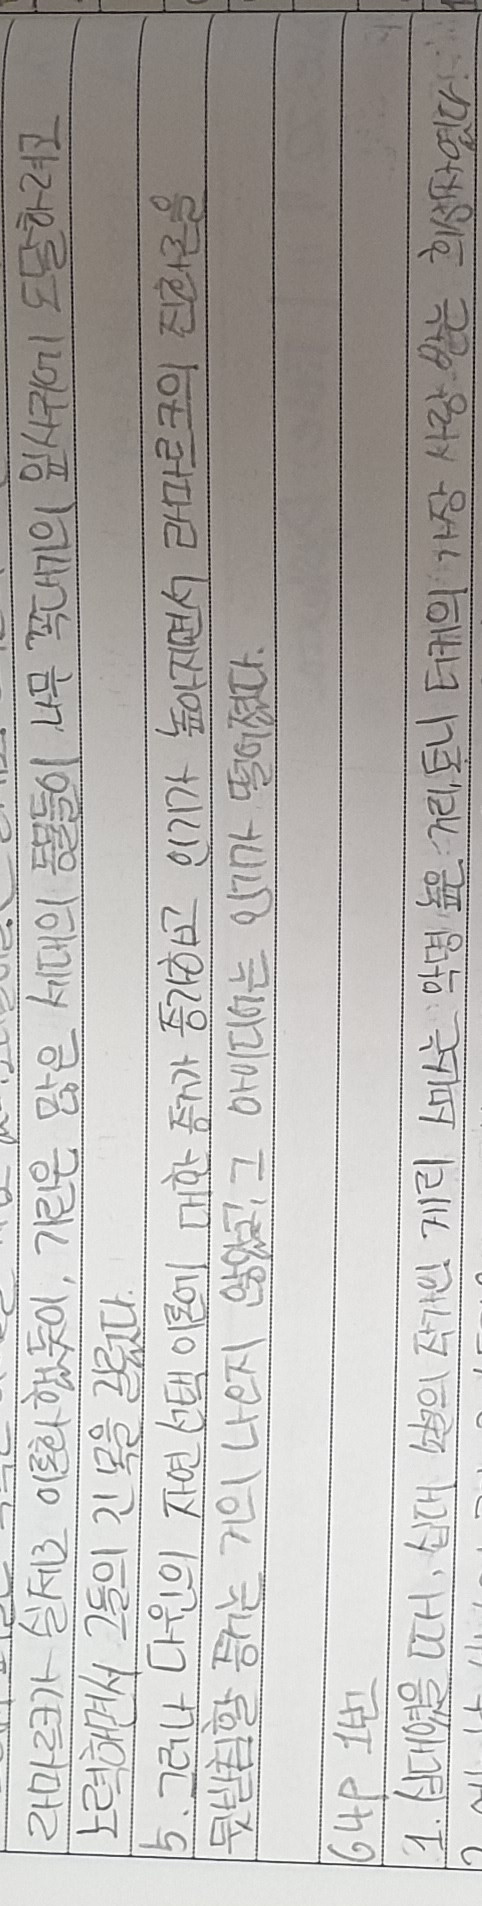 라마르크가 실제로 이론화했듯이, 기린은 많은 세대의 동물들이 나무 꼭대기의 잎사귀에 도달하려고
노력하면서 그들의 긴 목을 길렀다.
5. 그러나 다윈의 자연선택이론에 대한 증거가 증가하고 인기가 높아지면서 라마르크의 진화론을
뒷받침할 증거는 거의 나오지 않았고, 그 아이디어는 인기가 떨어졌다.
64p 1번
1. 십대였을 때, 십대 소설의 작가인 제리 스미스는 악명 높은 거리, 토니 터커의 가장 사랑 받는 희생자였다.